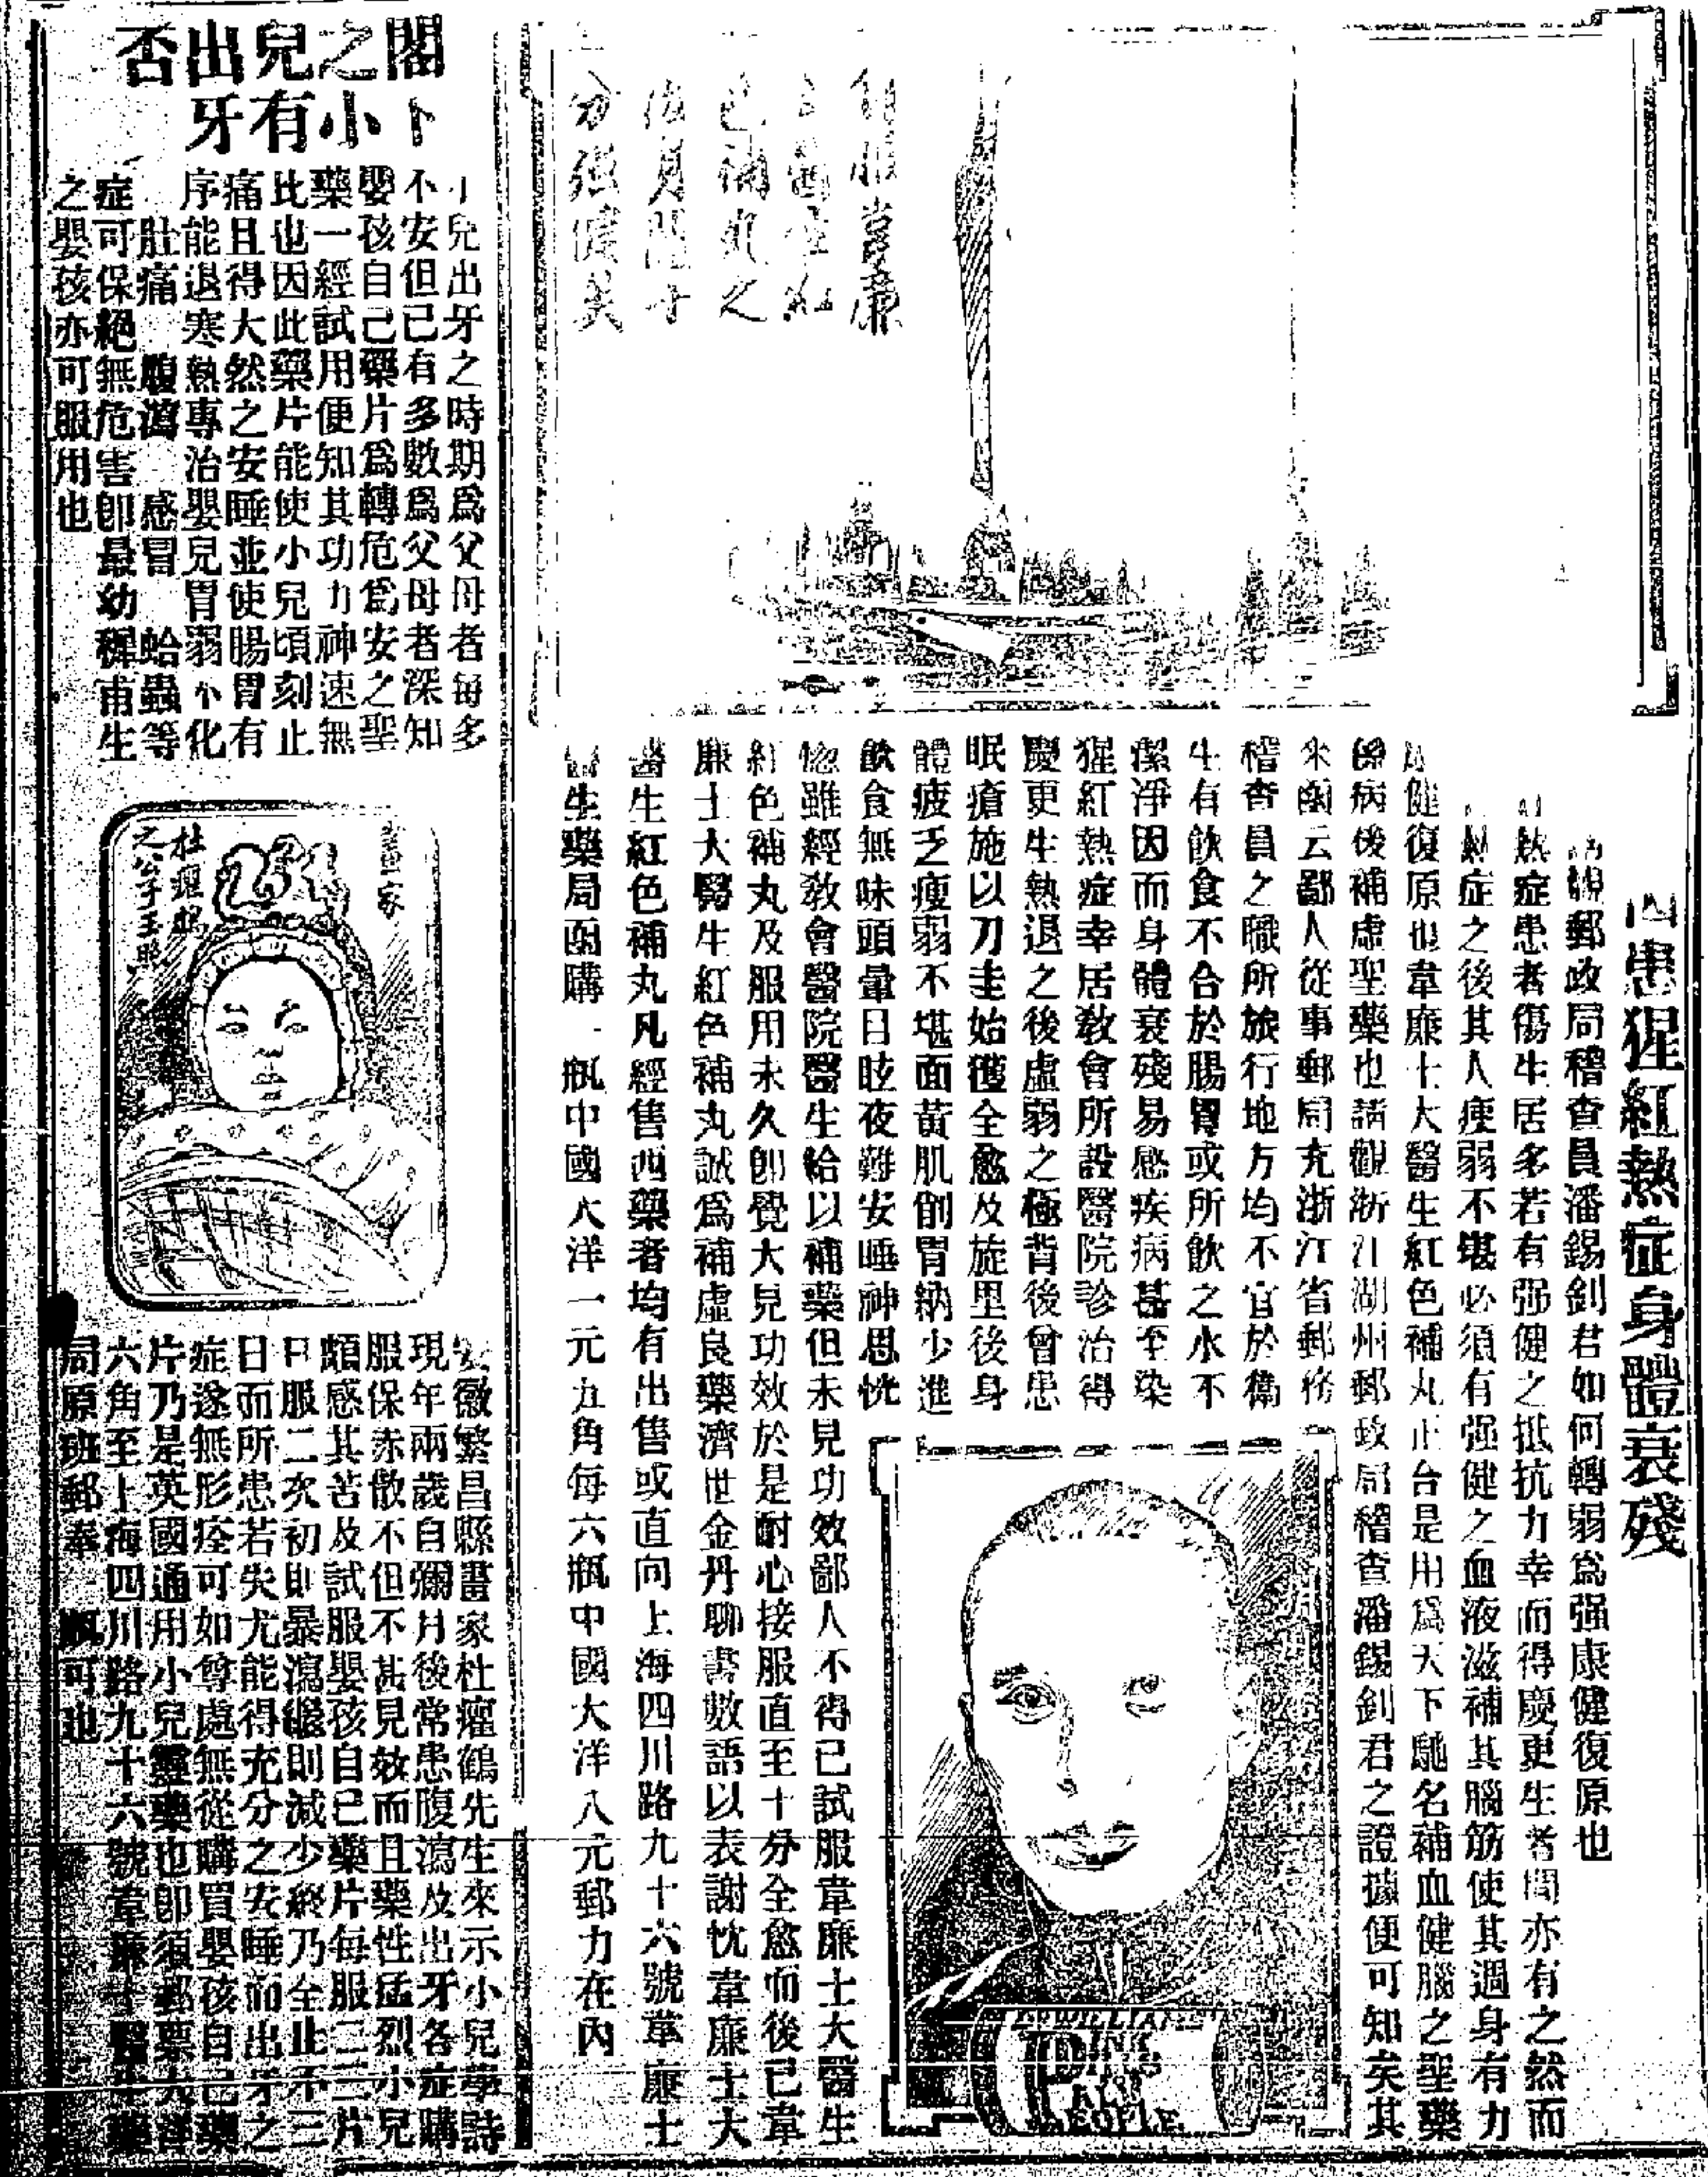 患猩紅熱症身體衰殘
郵政局稽查員潘錫釗君如何轉弱爲强康健復原也
熱症患者傷生居多若有强健之抵抗力幸而得慶更生者間亦有之然而
症之後其人瘦弱不堪必須有强健之血液滋補其腦筋使其週身有力
健復原也韋廉士大醫生紅色補丸正合是用爲天下馳名補血健腦之聖藥
係病後補虛聖藥也請觀浙江湖州郵政局稽查潘錫釗君之證據便可知矣其
來函云鄙人從事郵局充浙江省郵務
稽查員之職所旅行地方均不宜於衛
生有飲食不合於腸胃或所飲之水不
潔淨因而身體衰殘易感疾病甚至染
猩紅熱症幸居敎會所設醫院診治得
慶更生熱退之後虛弱之極背後曾患
眠瘡施以刀圭始獲全愈及旋里後身
體疲乏瘦弱不堪面黃肌削胃納少進
飲食無味頭暈目眩夜難安睡神思恍
惚雖經敎會醫院醫生給以補藥但未見功效鄙人不得已試服韋廉士大醫生
紅色補丸及服用未久卽覺大見功效於是耐心接服直至十分全愈而後已韋
廉士大醫生紅色補丸誠爲補虛良藥濟世金丹聊書數語以表謝忱韋廉士大
醫生紅色補丸凡經售西藥者均有出售或直向上海四川路九十六號韋廉士
醫生藥局函購一瓶中國大洋一元五角每六瓶中國大洋八元郵力在內
WILLIAMS
PINK
PILLS
FOR
PEOPLE
閣下
之小
兒有
出牙
否
小兒出牙之時期爲父母者每多
不安但已有多數爲父母者深知
嬰孩自己藥片爲轉危爲安之聖
藥一經試用便知其功力神速無
比也因此藥片能使小兒頃刻止
痛且得大然之安睡並使腸胃有
序能退寒熱專治嬰兒胃弱不化
肚痛 腹瀉 感冒 蛤蟲等
症可保絕無危害卽最幼穉甫生
之嬰孩亦可服用也
畫家
杜癯鶴
之公子
安徽繁昌縣畫家杜癯鶴先生來示小兒學詩
現年兩歲自彌月後常患腹瀉及出牙各症購
服保赤散不但不甚見效而且藥性猛烈小兒
頗感其苦及試服嬰孩自己藥片每服二三片
日服二次初則暴瀉繼則減少終乃全止不三
日而所患若失尤能得充分之安睡而出牙之
症遂無形痊可如尊處無從購買嬰孩自己藥
片乃是英國通用小兒靈藥也卽須郵票大洋
六角至上海四川路九十六號韋廉士醫生藥
局原班郵奉一瓶可也